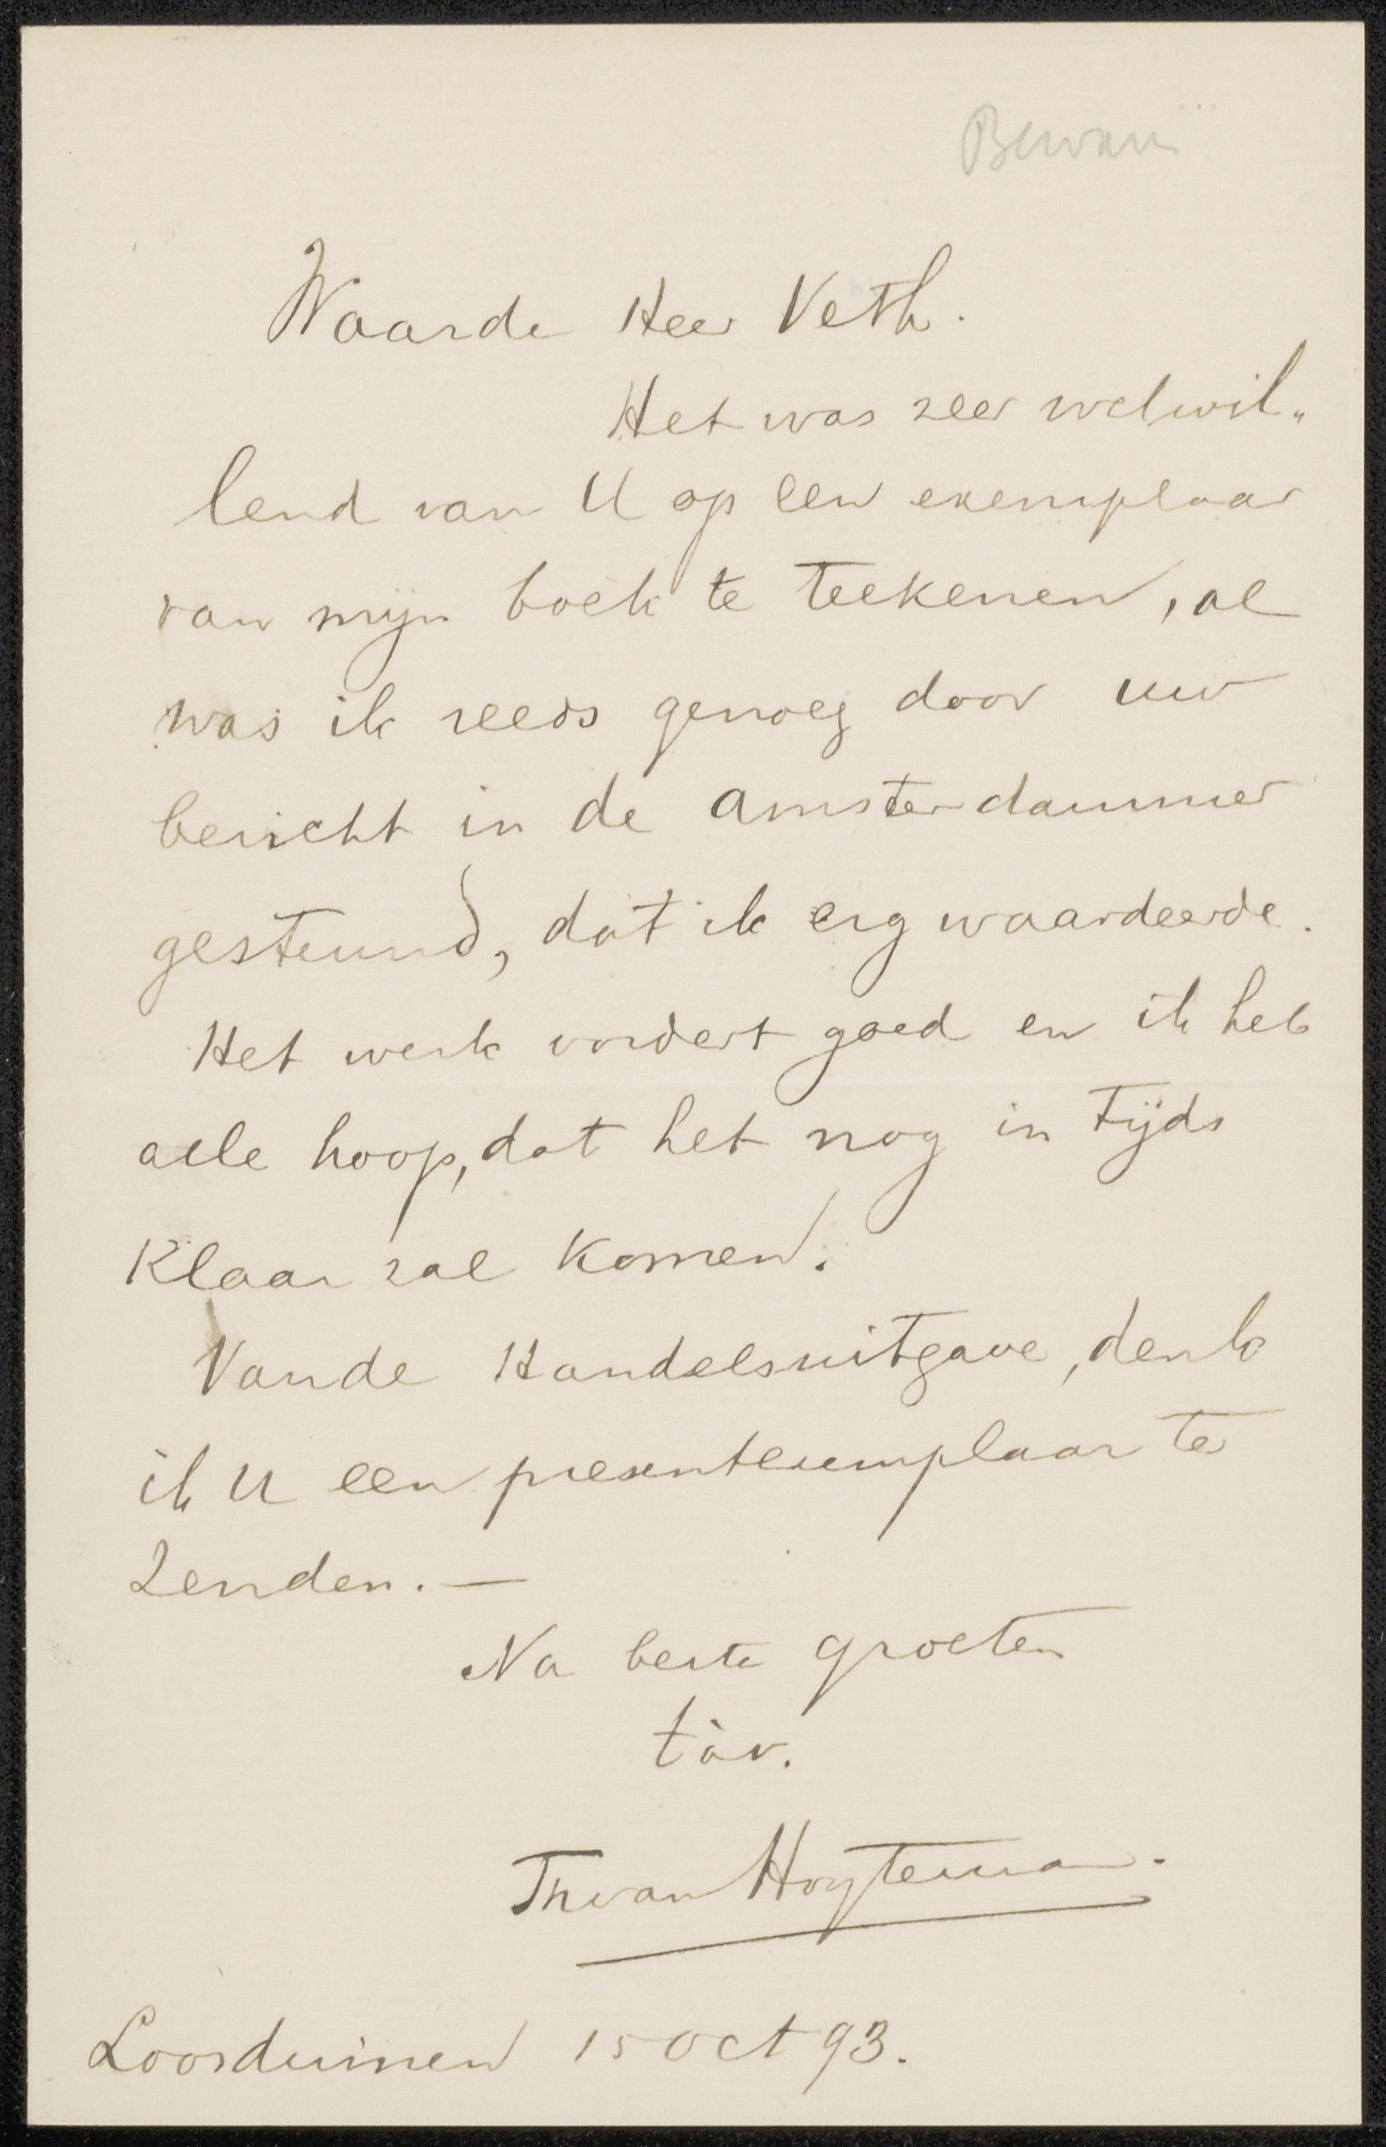 Waarde Heer Veth.
Het was zeer welwil„
lend van U op een exemplaar
van mijn boek te teekenen, al
was ik reeds genoeg door uw
bericht in de amsterdammer
gesteund, dat ik erg waardeerde.
Het werk vordert goed en ik heb
alle hoop, dat het nog in tijds
klaar zal komen.
Vande Handelsuitgave, denk
ik U een presentexemplaar te
Zenden. —
Na beste groeten
tàv.
Th van Hoytema.
Loosduinen 15 Oct 93.